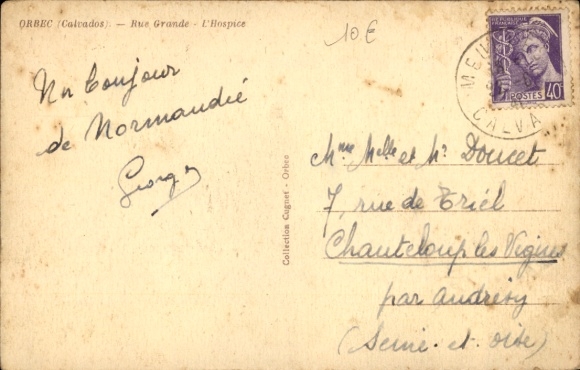 ORBEC (Calvados). — Rue Grande - L'Hospice
10 €
Un bonjour
de Normandie
Georges
Collection Cognet - Orbec
RÉPUBLIQUE FRANÇAISE
POSTES 40c
CALVA
Mme Melle et Mr Doucet
7, rue de Triel
Chanteloup les Vignes
par Andrésy
(Seine et Oise)